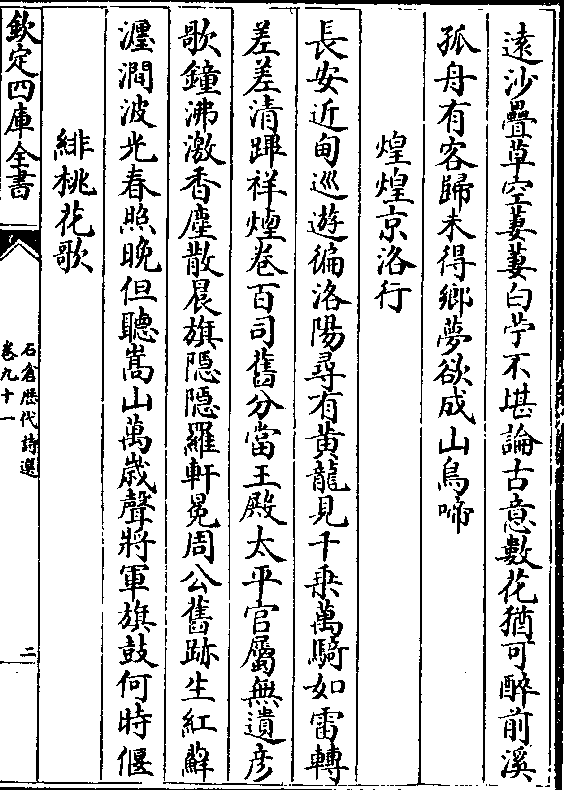 遠沙疊草空萋萋白苧不堪論古意數花猶可醉前溪
孤舟有客歸未得鄉夢欲成山鳥啼
煌煌京洛行
長安近甸巡遊徧洛陽尋有黄龍見千乗萬騎如雷轉
差差清蹕祥煙卷百司舊分當王殿太平官屬無遺彦
歌鐘沸激香塵散晨旗隠隠羅軒冕周公舊跡生紅蘚
瀍澗波光春照晚但聽嵩山萬歳聲將軍旗鼓何時偃
緋桃花歌
欽定四庫全書
石倉歴代詩選
卷九十一
二